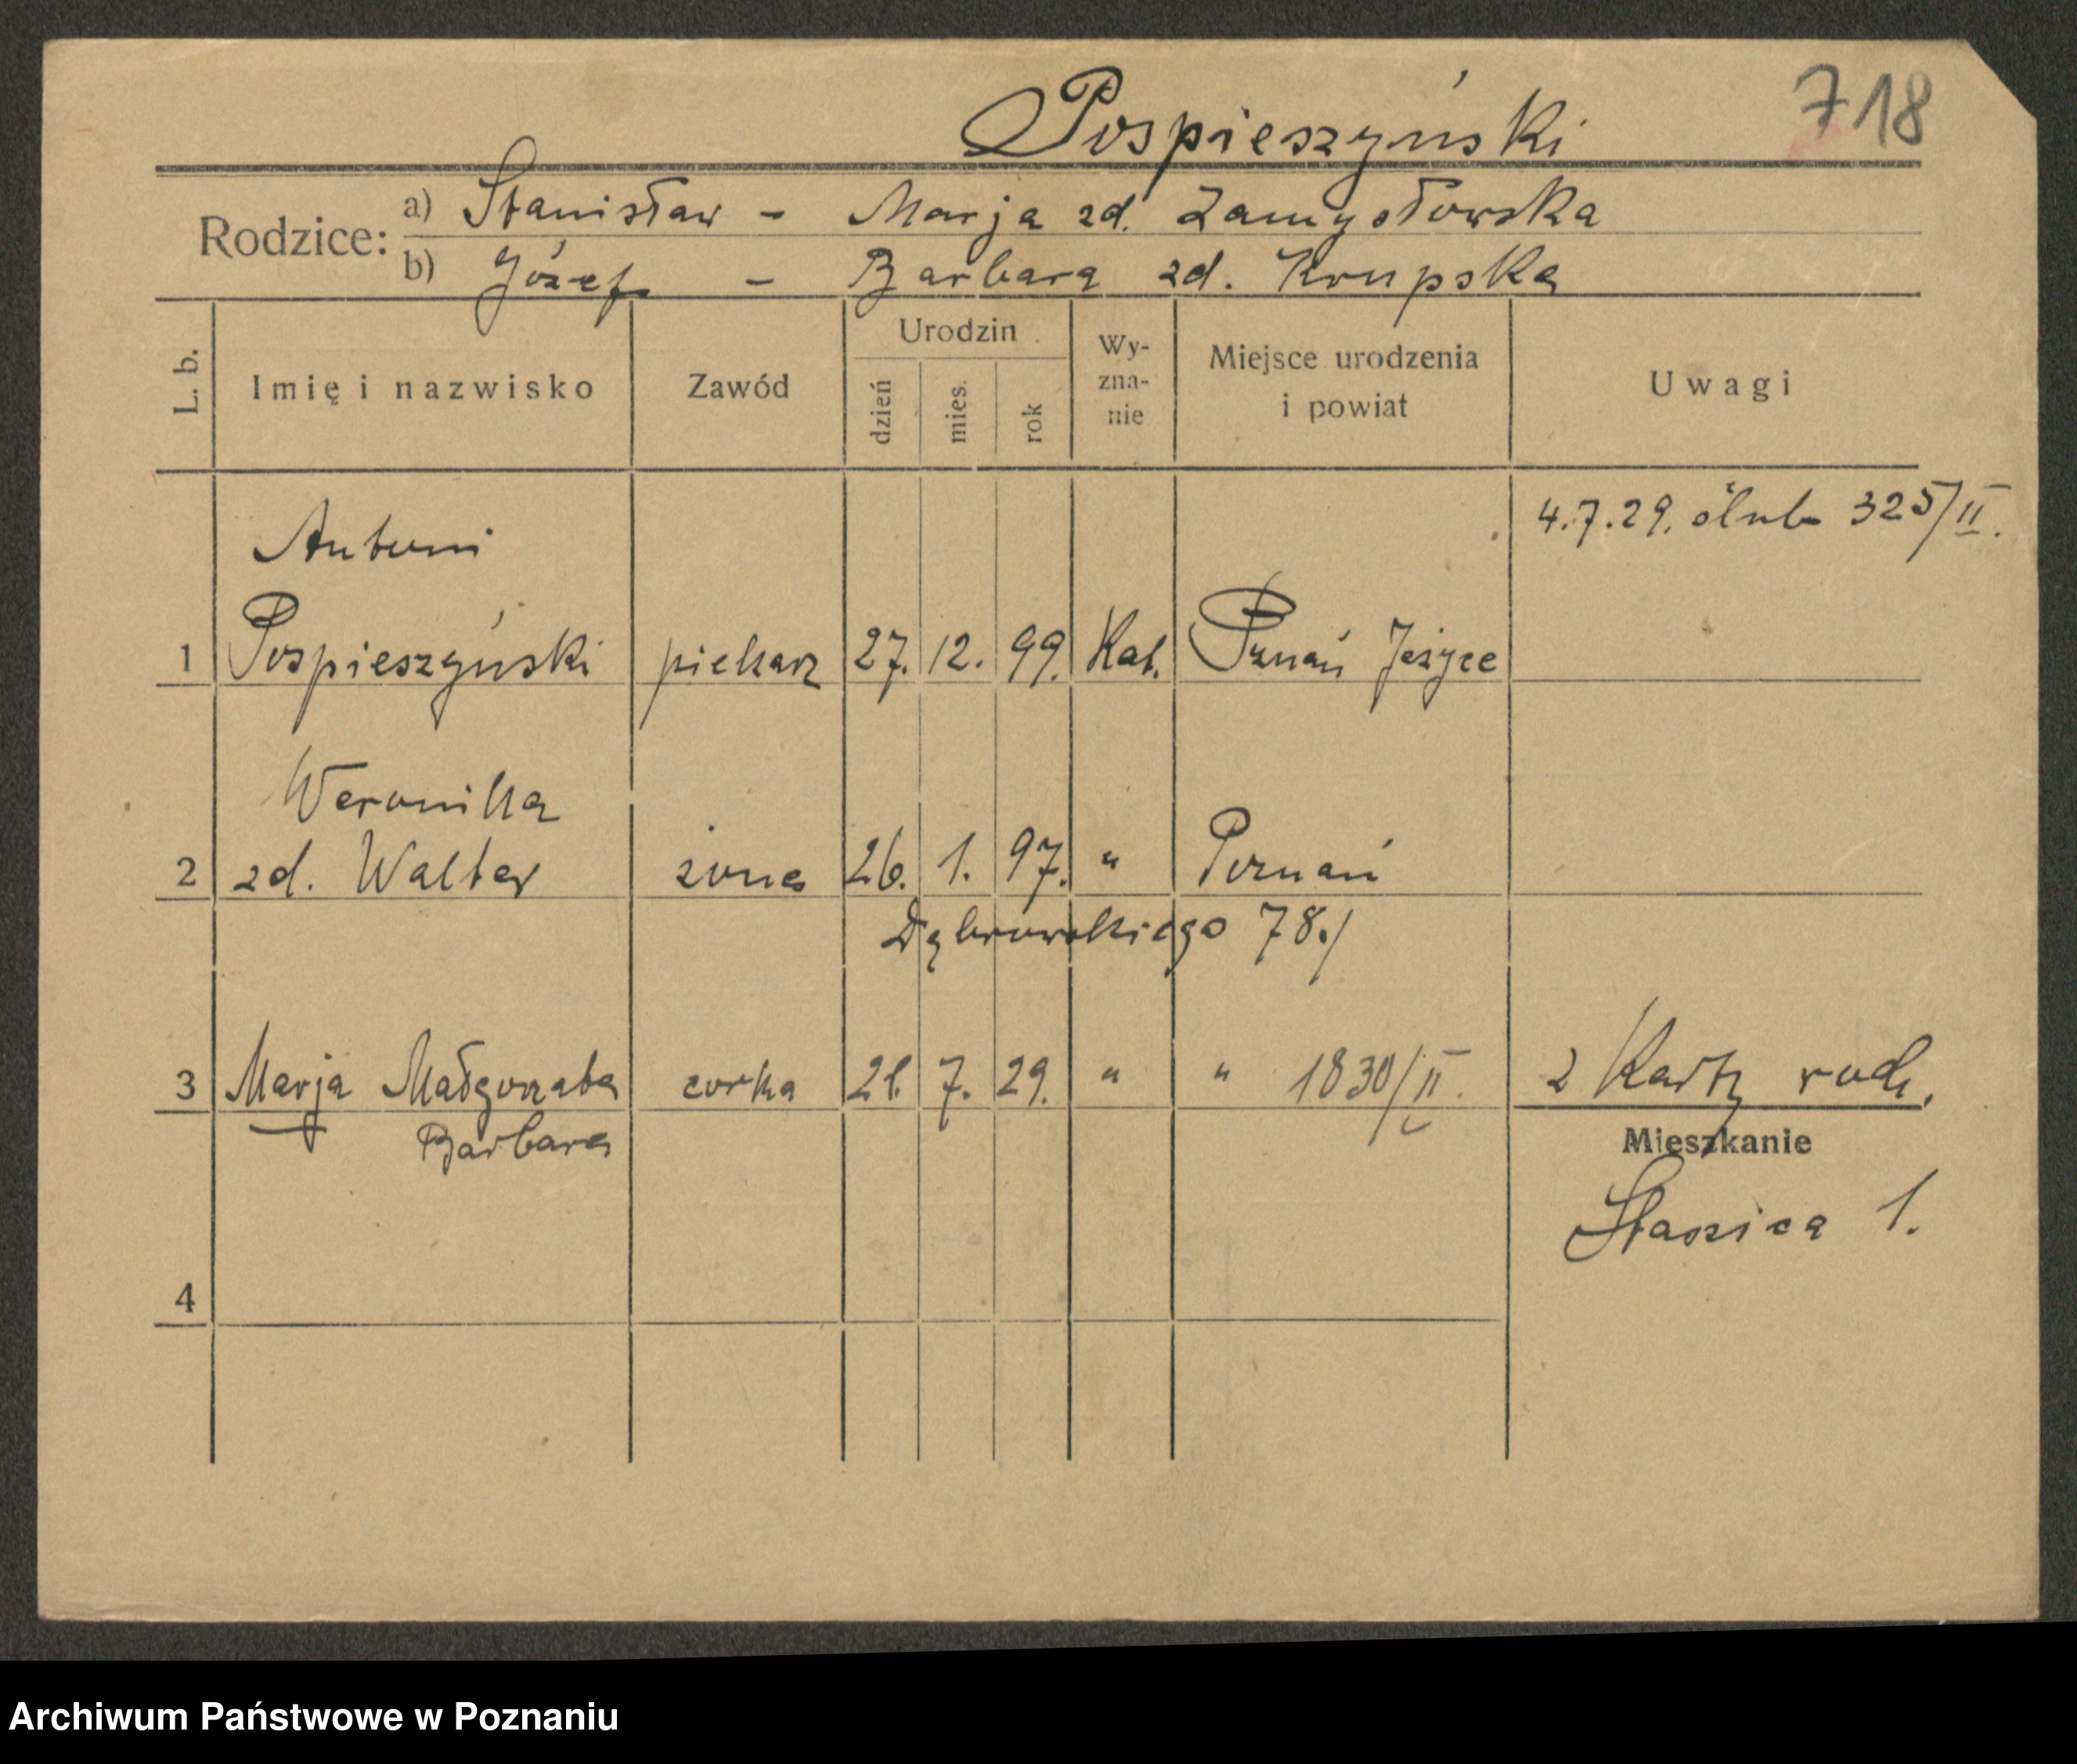 718
Pospieszyński
Rodzice: a) Stanisław - Marja zd. Zamysłowska
b) Józef - Barbara zd. Krupska
L. b. Imię i nazwisko Zawód Urodzin dzień mies. rok Wy-zna-nie Miejsce urodzenia i powiat Uwagi
4.7.29. ślub 325/II.
Antoni
1 Pospieszyński piekarz 27. 12. 99. Kat. Poznań Jeżyce
Weronika
2 zd. Walter żona 26. 1. 97. " Poznań
Dąbrowskiego 78./
3 Marja Małgorzata córka 21. 7. 29. " " 1830/II. 2 Karty rodz.
Barbara
Mieszkanie
Staszica 1.
4
Archiwum Państwowe w Poznaniu